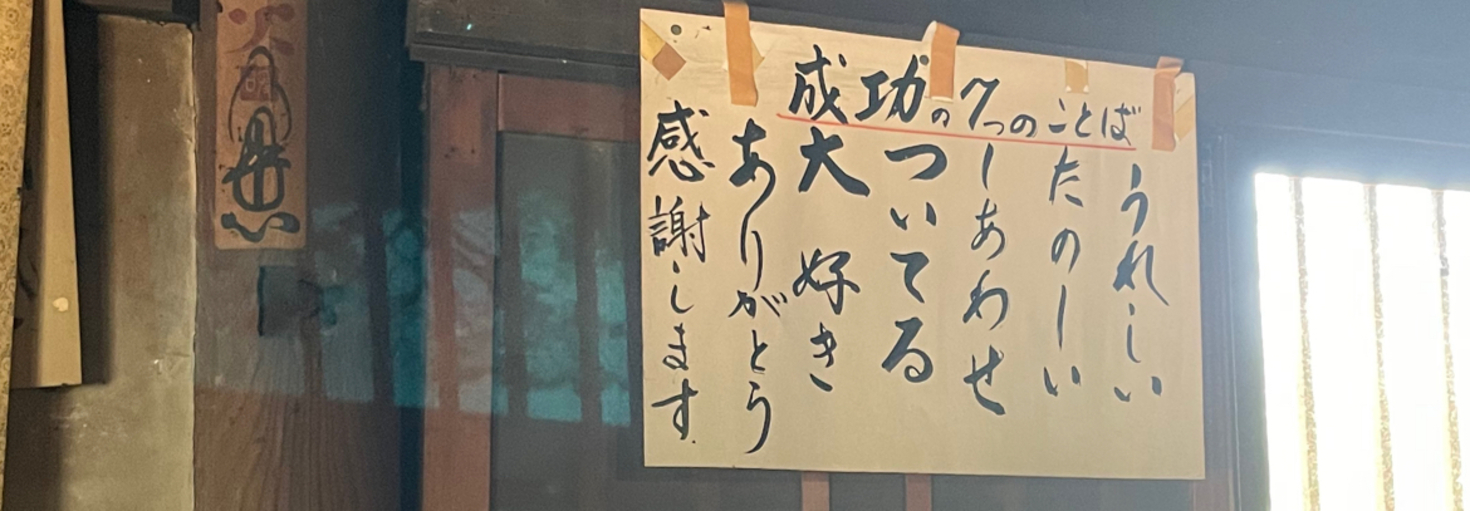 成功の7つのことば
うれしい
たのしい
しあわせ
ついてる
大好き
ありがとう
感謝します